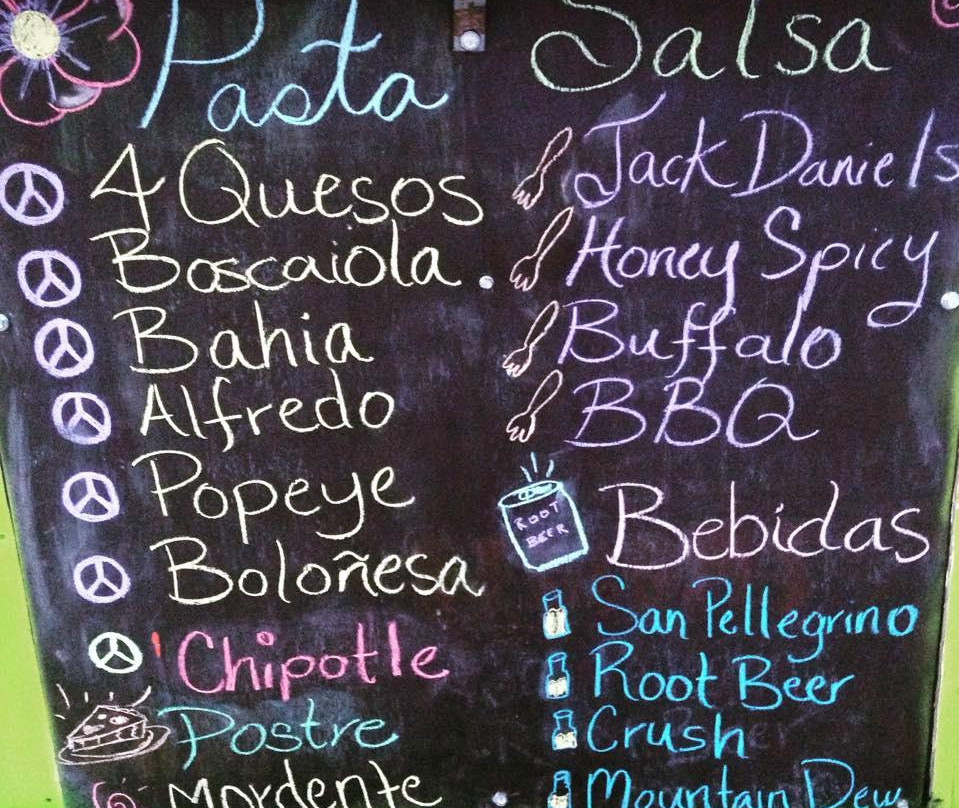 Pasta
4 Quesos
Boscaiola
Bahia
Alfredo
Popeye
Boloñesa
Chipotle
Postre
Mordente
Salsa
Jack Daniels
Honey Spicy
Buffalo
BBQ
ROOT
BEER
Bebidas
San Pellegrino
Root Beer
Crush
Mountain Dew